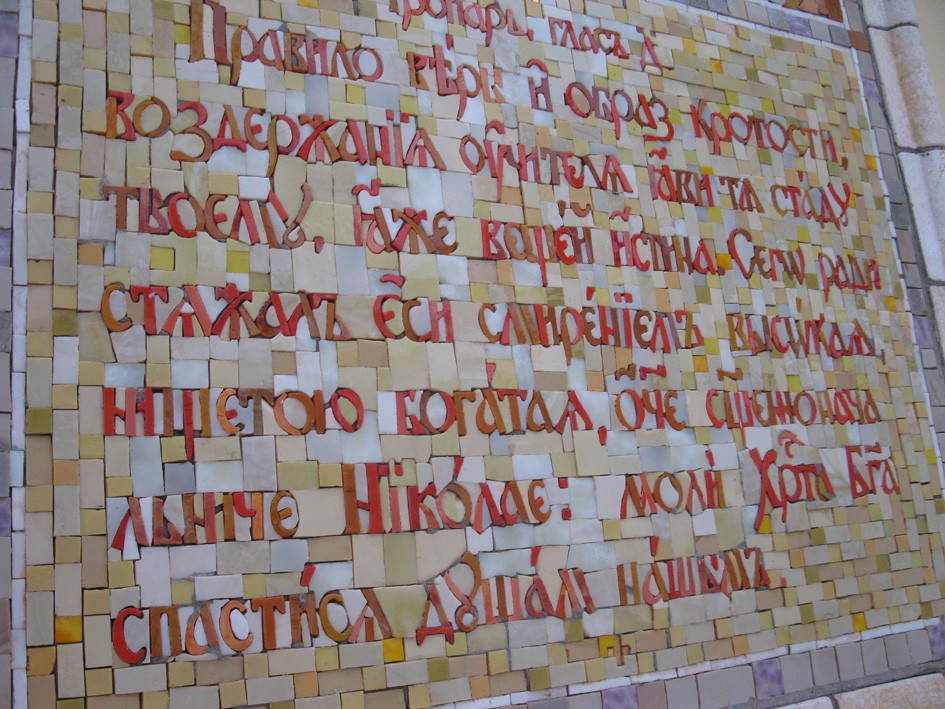 Тропарь, гласъ д҃
Правило вѣры и҆ ѻбразъ кротости,
воздержанїѧ оу҆чителѧ ꙗ҆ви тѧ ста́дꙋ
твоемꙋ, ꙗ҆́же веще́й и҆стина. Сегѡ ради
стѧжалъ е҆сѝ смире́нїемъ высѡ́каѧ,
нищетою бога́таѧ, ѻ҆́ч҃е сщ҃емонача
льниче Нїко́лае: моли́ Хрⷭ҇та Бг҃а
спасти́сѧ дꙋша́мъ на́шымъ.